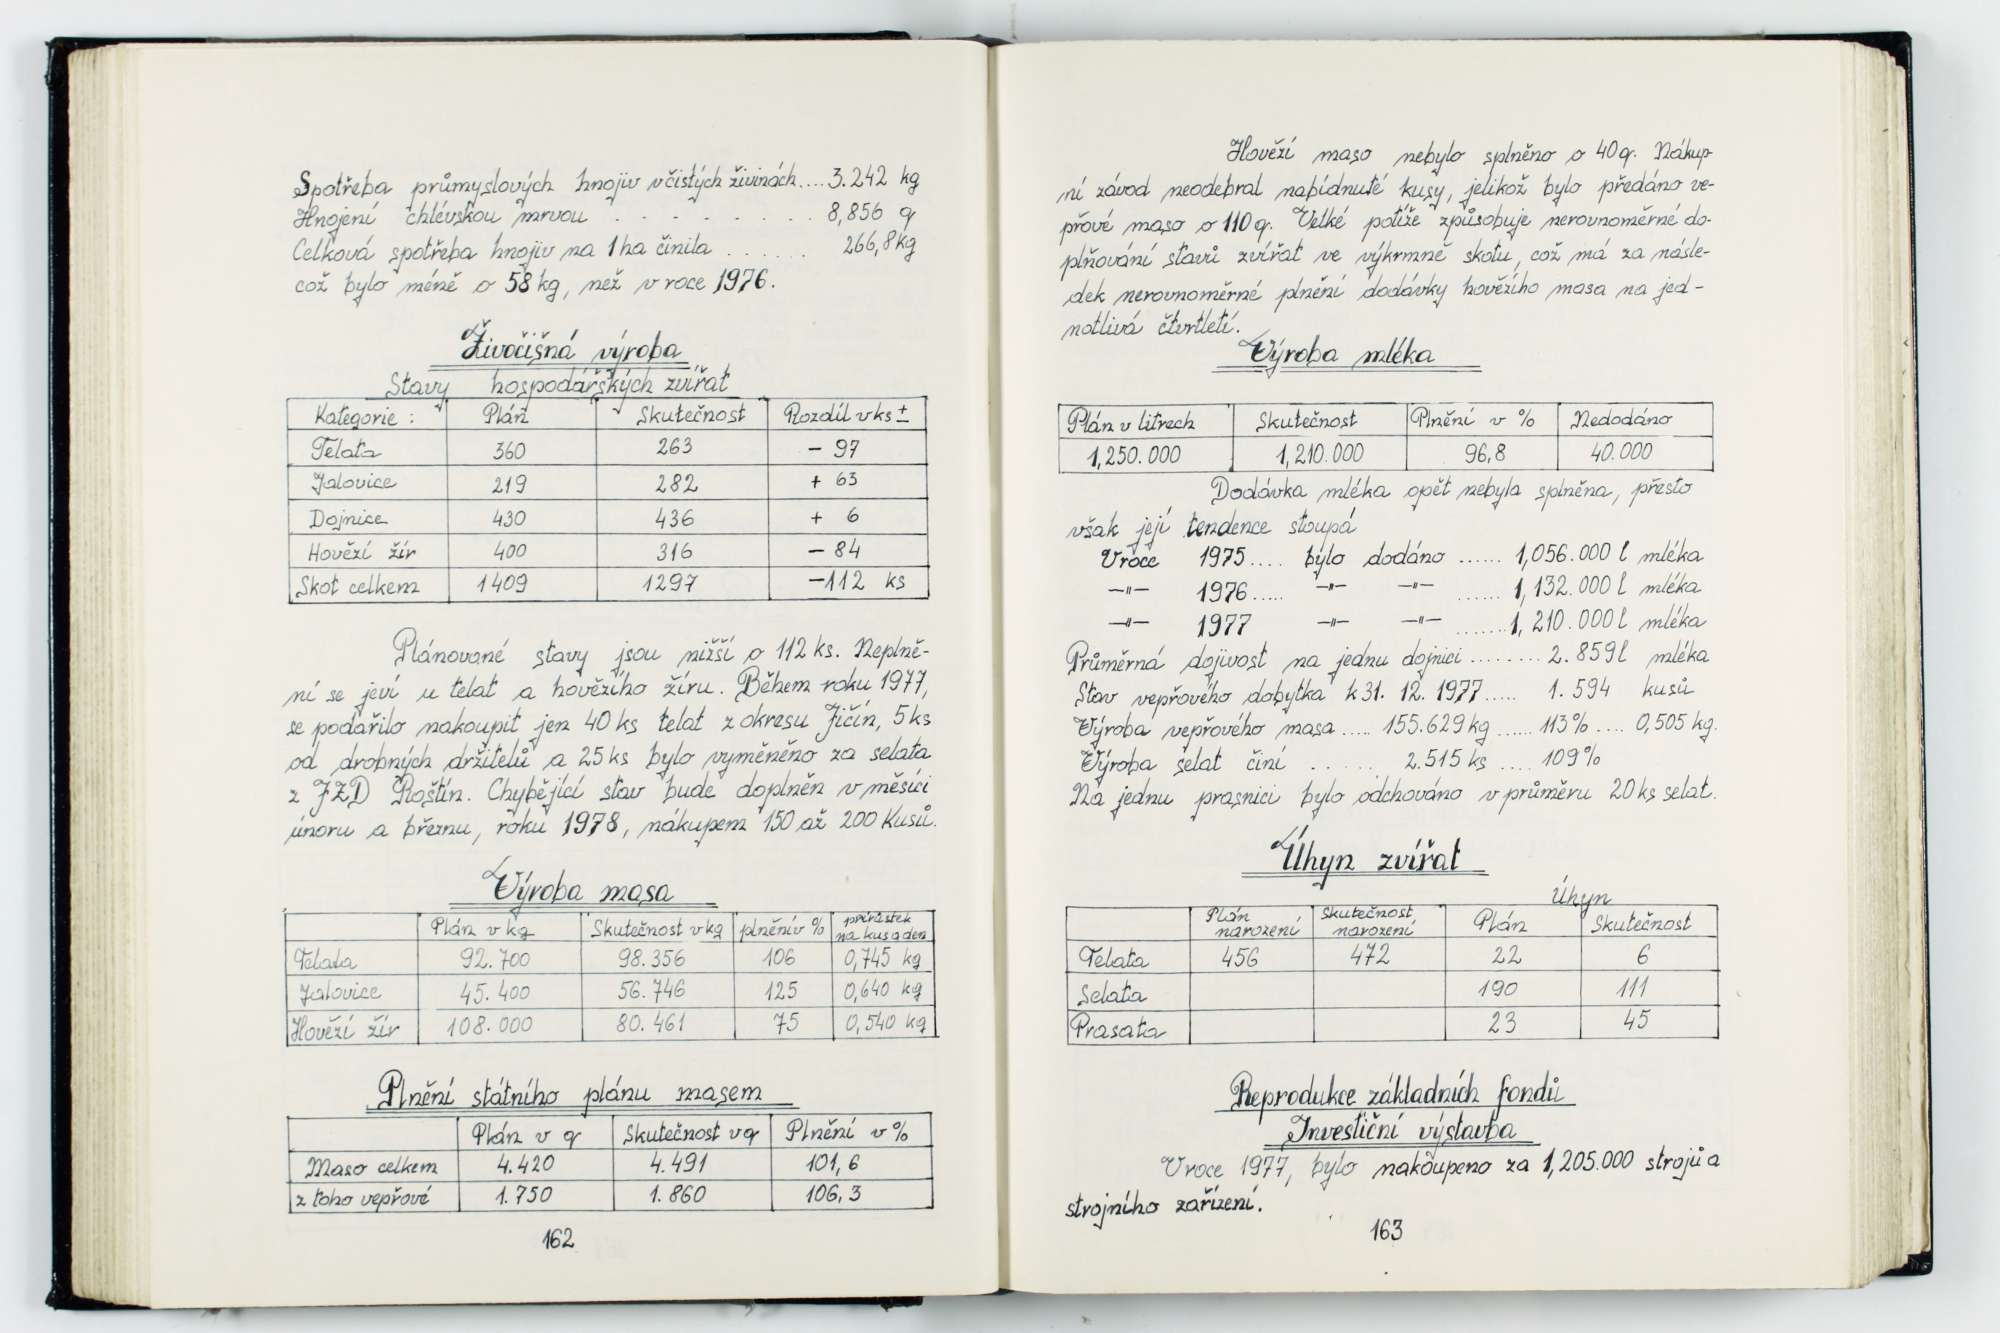 Spotřeba průmyslových hnojiv v čistých živinách....3.242 kg
Hnojení chlévskou mrvou . . . . . . . . 8,856 q
Celková spotřeba hnojiv na 1 ha činila ....... 266,8 kg
což bylo méně o 58 kg, než v roce 1976.
Živočišná výroba
Stavy hospodářských zvířat
Kategorie : Plán Skutečnost Rozdíl v ks ±
Telata 360 263 - 97
Jalovice 219 282 + 63
Dojnice 430 436 + 6
Hovězí žír 400 316 - 84
Skot celkem 1409 1297 -112 ks
Plánované stavy jsou nižší o 112 ks. Neplně-
ní se jeví u telat a hovězího žíru. Během roku 1977,
se podařilo nakoupit jen 40 ks telat z okresu Jičín, 5 ks
od drobných držitelů a 25 ks bylo vyměněno za selata
z JZD Roštín. Chybějící stav bude doplněn v měsíci
únoru a březnu, roku 1978, nákupem 150 až 200 Kusů.
Výroba masa
Plán v kg Skutečnost v kg plnění v % přírůstek na kus a den
Telata 92.700 98.356 106 0,745 kg
Jalovice 45.400 56.746 125 0,640 kg
Hovězí žír 108.000 80.461 75 0,540 kg
Plnění státního plánu masem
Plán v q Skutečnost v q Plnění v %
Maso celkem 4.420 4.491 101,6
z toho vepřové 1.750 1.860 106,3
162
Hovězí maso nebylo splněno o 40 q. Nákup-
ní závod neodebral nabídnuté kusy, jelikož bylo předáno ve-
přové maso o 110 q. Velké potíže způsobuje nerovnoměrné do-
plňování stavů zvířat ve výkrmně skotu, což má za násle-
dek nerovnoměrné plnění dodávky hovězího masa na jed-
notlivá čtvrtletí.
Výroba mléka
Plán v litrech Skutečnost Plnění v % Nedodáno
1,250.000 1,210.000 96,8 40.000
Dodávka mléka opět nebyla splněna, přesto
však její tendence stoupá
V roce 1975.... bylo dodáno ...... 1,056.000 l mléka
-"- 1976..... -"- -"- ...... 1,132.000 l mléka
-"- 1977 -"- -"- .......1,210.000 l mléka
Průměrná dojivost na jednu dojnici ........ 2.859 l mléka
Stav vepřového dobytka k 31. 12. 1977..... 1.594 kusů
Výroba vepřového masa ..... 155.629 kg ...... 113% .... 0,505 kg.
Výroba selat činí ...... 2.515 ks .... 109%
Na jednu prasnici bylo odchováno v průměru 20 ks selat.
Úhyn zvířat
Úhyn
Plán narození Skutečnost narození Plán Skutečnost
Telata 456 472 22 6
Selata 190 111
Prasata 23 45
Reprodukce základních fondů
Investiční výstavba
V roce 1977, bylo nakoupeno za 1,205.000 strojů a
strojního zařízení.
163